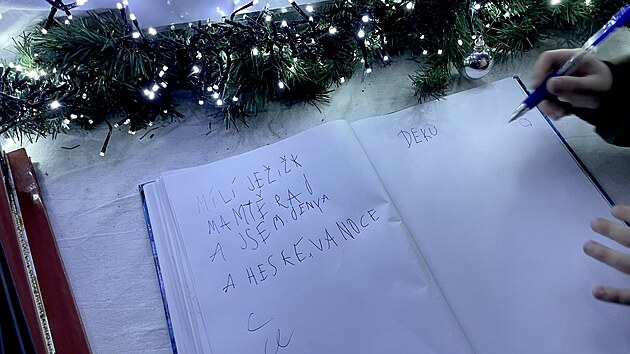 MILÍ JEŽIŽK
MAMTĚ RAD
A JSEM JENYA
A HESKÉ VANOCE
DEKU